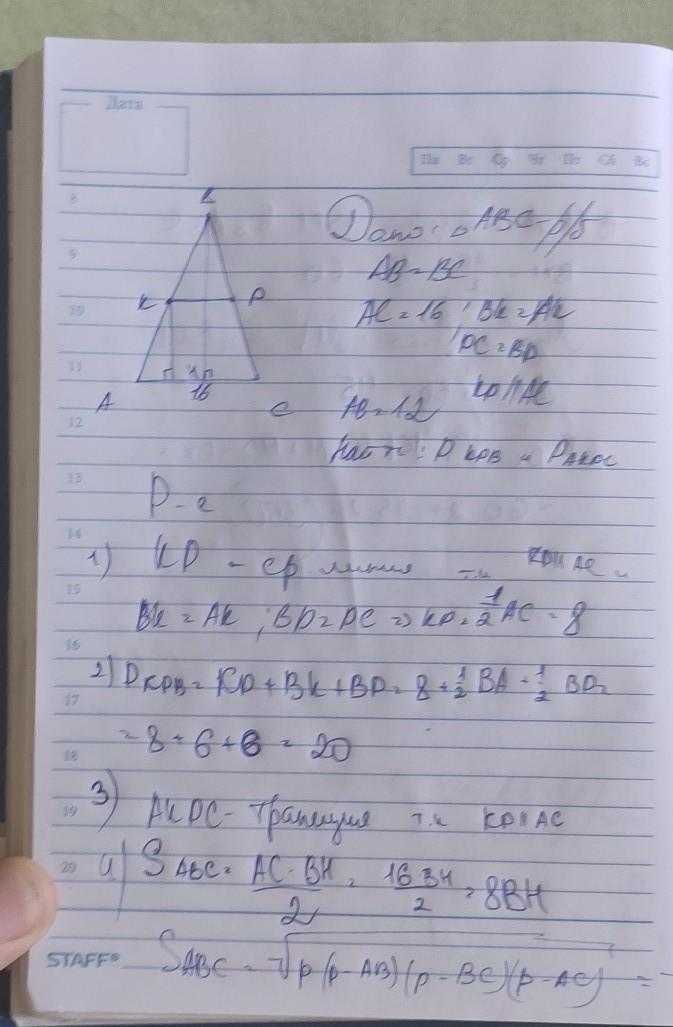 Дата
Пн Вт Ср Чт Пт Сб Вс
8
Дано: △ABC-р/б
AB=BC
9
K P
AC=16; BK=AK
10
PC=BP
11
KP||AC
16
A C AB=12
12
Найти: P KPB и P AKPC
13
P-е
14
1) KP - ср. линия т.к KP||AC и
15
BK=AK; BP=PC => KP=1/2 AC=8
16
2) P KPB = KP+BK+BP=8+1/2 BA+1/2 BC=
17
=8+6+6=20
18
3)
19
AKPC-трапеция т.к KP||AC
20
4) S ABC = AC·BH/2 = 16BH/2 = 8BH
STAFF®
S ABC = √p(p-AB)(p-BC)(p-AC) =